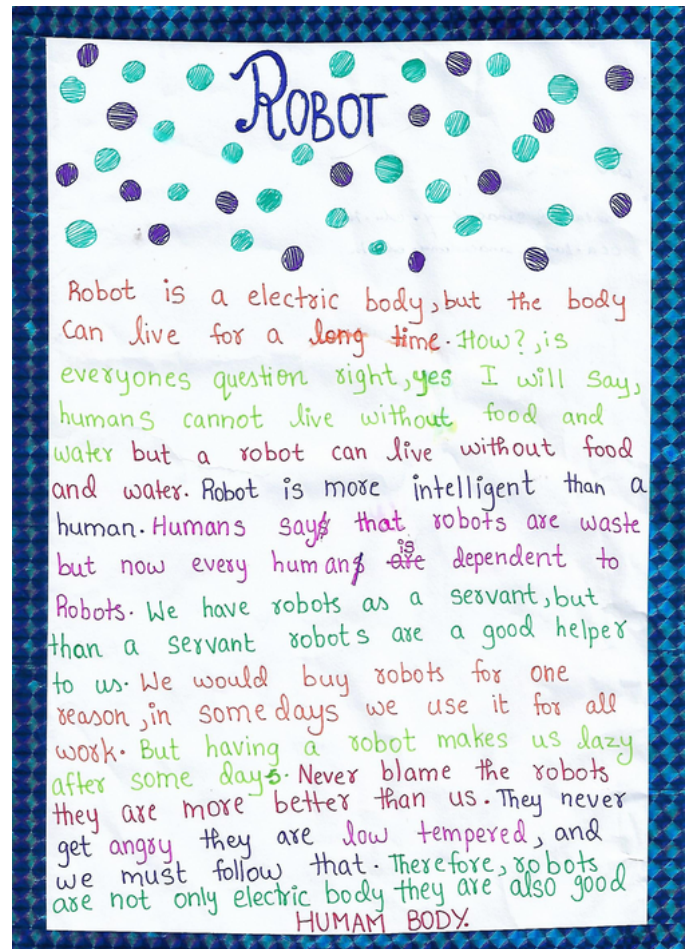 ROBOT
Robot is a electric body, but the body
can live for a long time. How?, is
everyones question right, yes I will say,
humans cannot live without food and
water but a robot can live without food
and water. Robot is more intelligent than a
human. Humans say that robots are waste
but now every human is dependent to
Robots. We have robots as a servant, but
than a servant robots are a good helper
to us. We would buy robots for one
reason, in some days we use it for all
work. But having a robot makes us lazy
after some days. Never blame the robots
they are more better than us. They never
get angry they are low tempered, and
we must follow that. Therefore, robots
are not only electric body they are also good
HUMAM BODY.